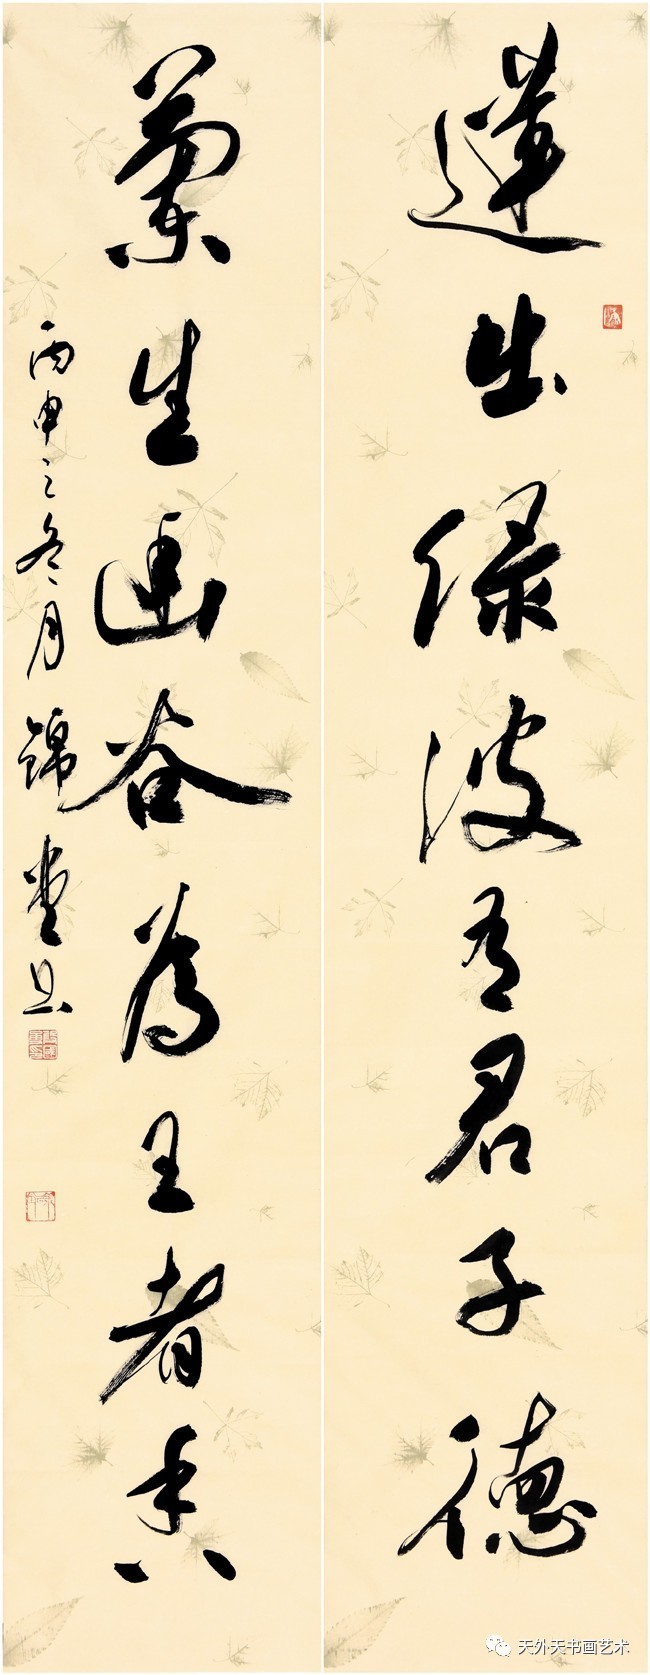 蓮出緑波有君子德
蘭生幽谷為王者香
丙申之冬月錦堂
天外天书画艺术